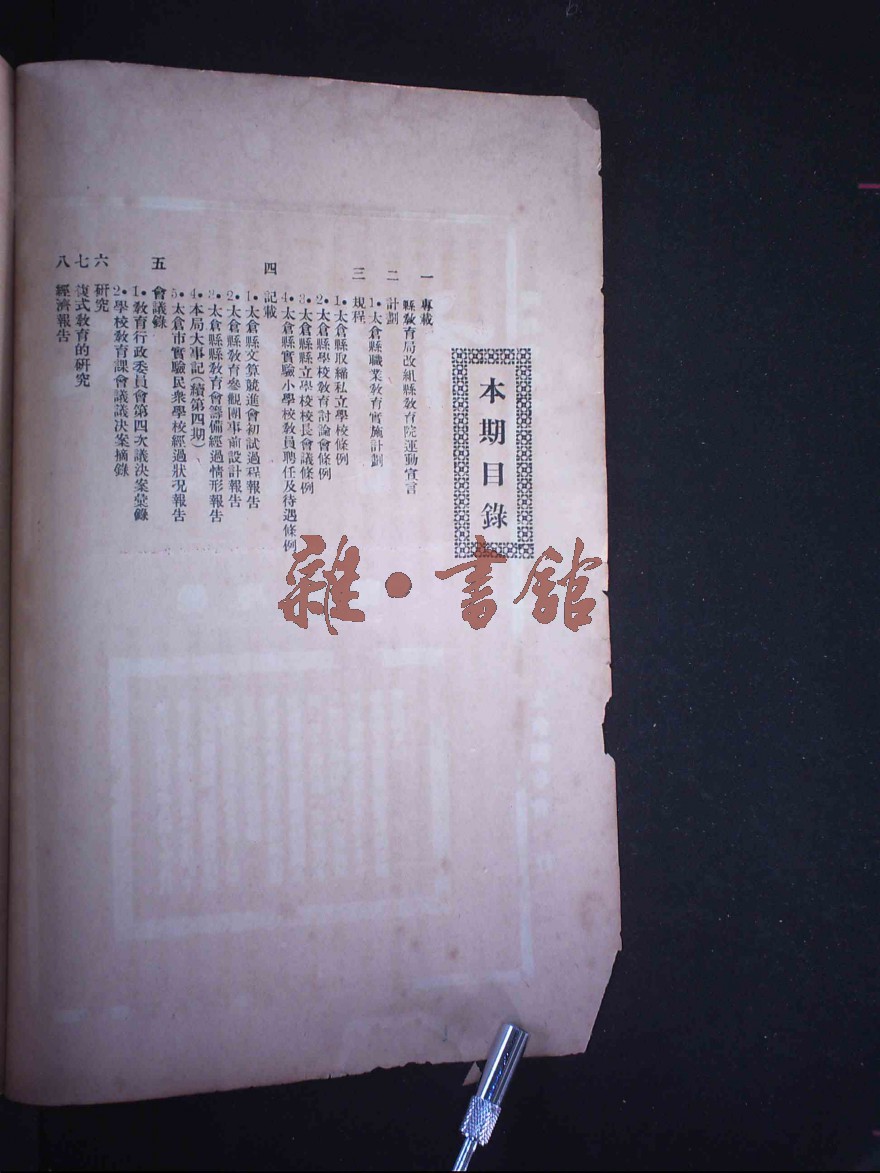 本期目錄
一 專載
縣敎育局改組縣敎育院運動宣言
二 計劃
1•太倉縣職業敎育實施計劃
三 規程
1•太倉縣取締私立學校條例
2•太倉縣學校敎育討論會條例
3•太倉縣縣立學校校長會議條例
4•太倉縣實驗小學校敎員聘任及待遇條例
四 記載
1•太倉縣文算競進會初試過程報告
2•太倉縣敎育參觀團事前設計報告
3•太倉縣縣敎育會籌備經過情形報告
4•本局大事記(續第四期)
5•太倉市實驗民衆學校經過狀况報告
五 會議錄
1•敎育行政委員會第四次議決案彙錄
2•學校敎育課會議議決案摘錄
六 研究
七 復式敎育的硏究
八 經濟報告
雜•書館